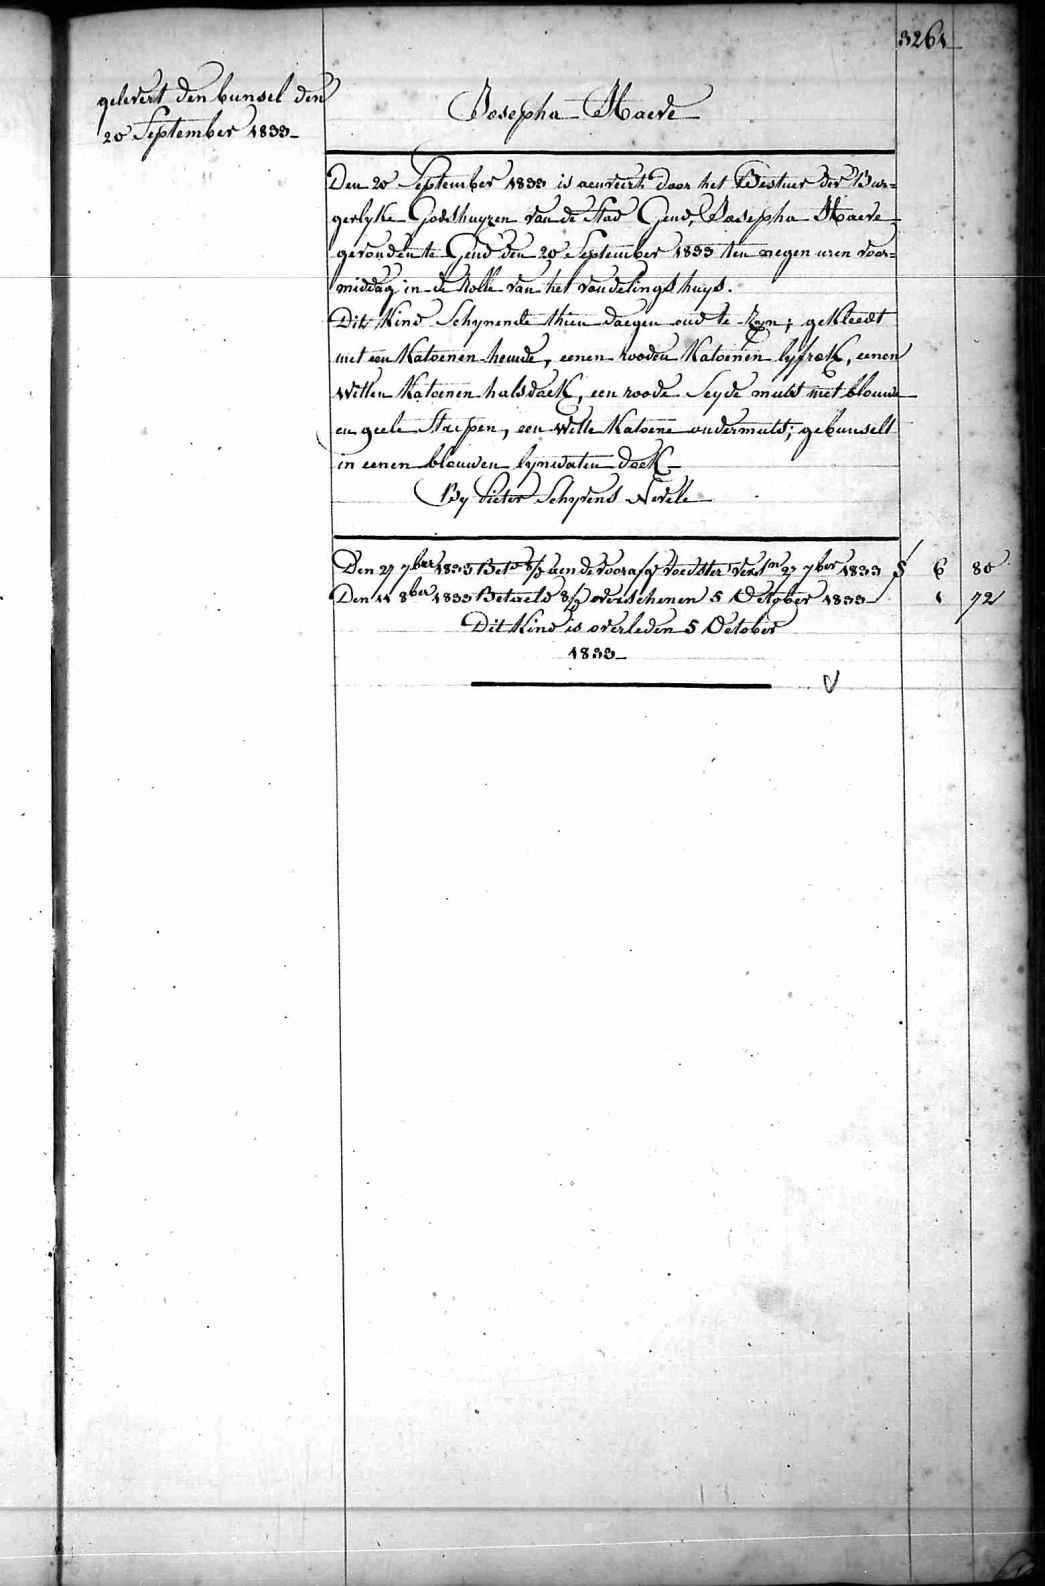 3261
gelevert den bunsel den
20 September 1833
Josepha Haeve
Den 20 September 1833 is aenveert door het Bestuer der Bur=
gerlyke Godshuyzen van de Stad Gend, Josepha Haeve
gevonden te Gend den 20 September 1833 ten negen uren voor=
middag in de Rolle van het vondelingshuys.
Dit Kind Schynende thien daegen oud te zyn; gekleedt
met een Katoenen hemde, eenen rooden Katoenen lyfrok, eenen
witten Katoenen halsdoek, een roode Seyde muts met blouwe
en geele Streepen, een witte Katoene ondermuts; gebunselt
in eenen blouwen lynwaten doek
By Pieter Schyvens Nevele
Den 27 7ber 1833 Bet aen de voedster 27 7ber 1833 6 80
Den 11 8ber 1833 Betaeld verschenen 5 October 1833 1 72
Dit Kind is overleden 5 October
1833